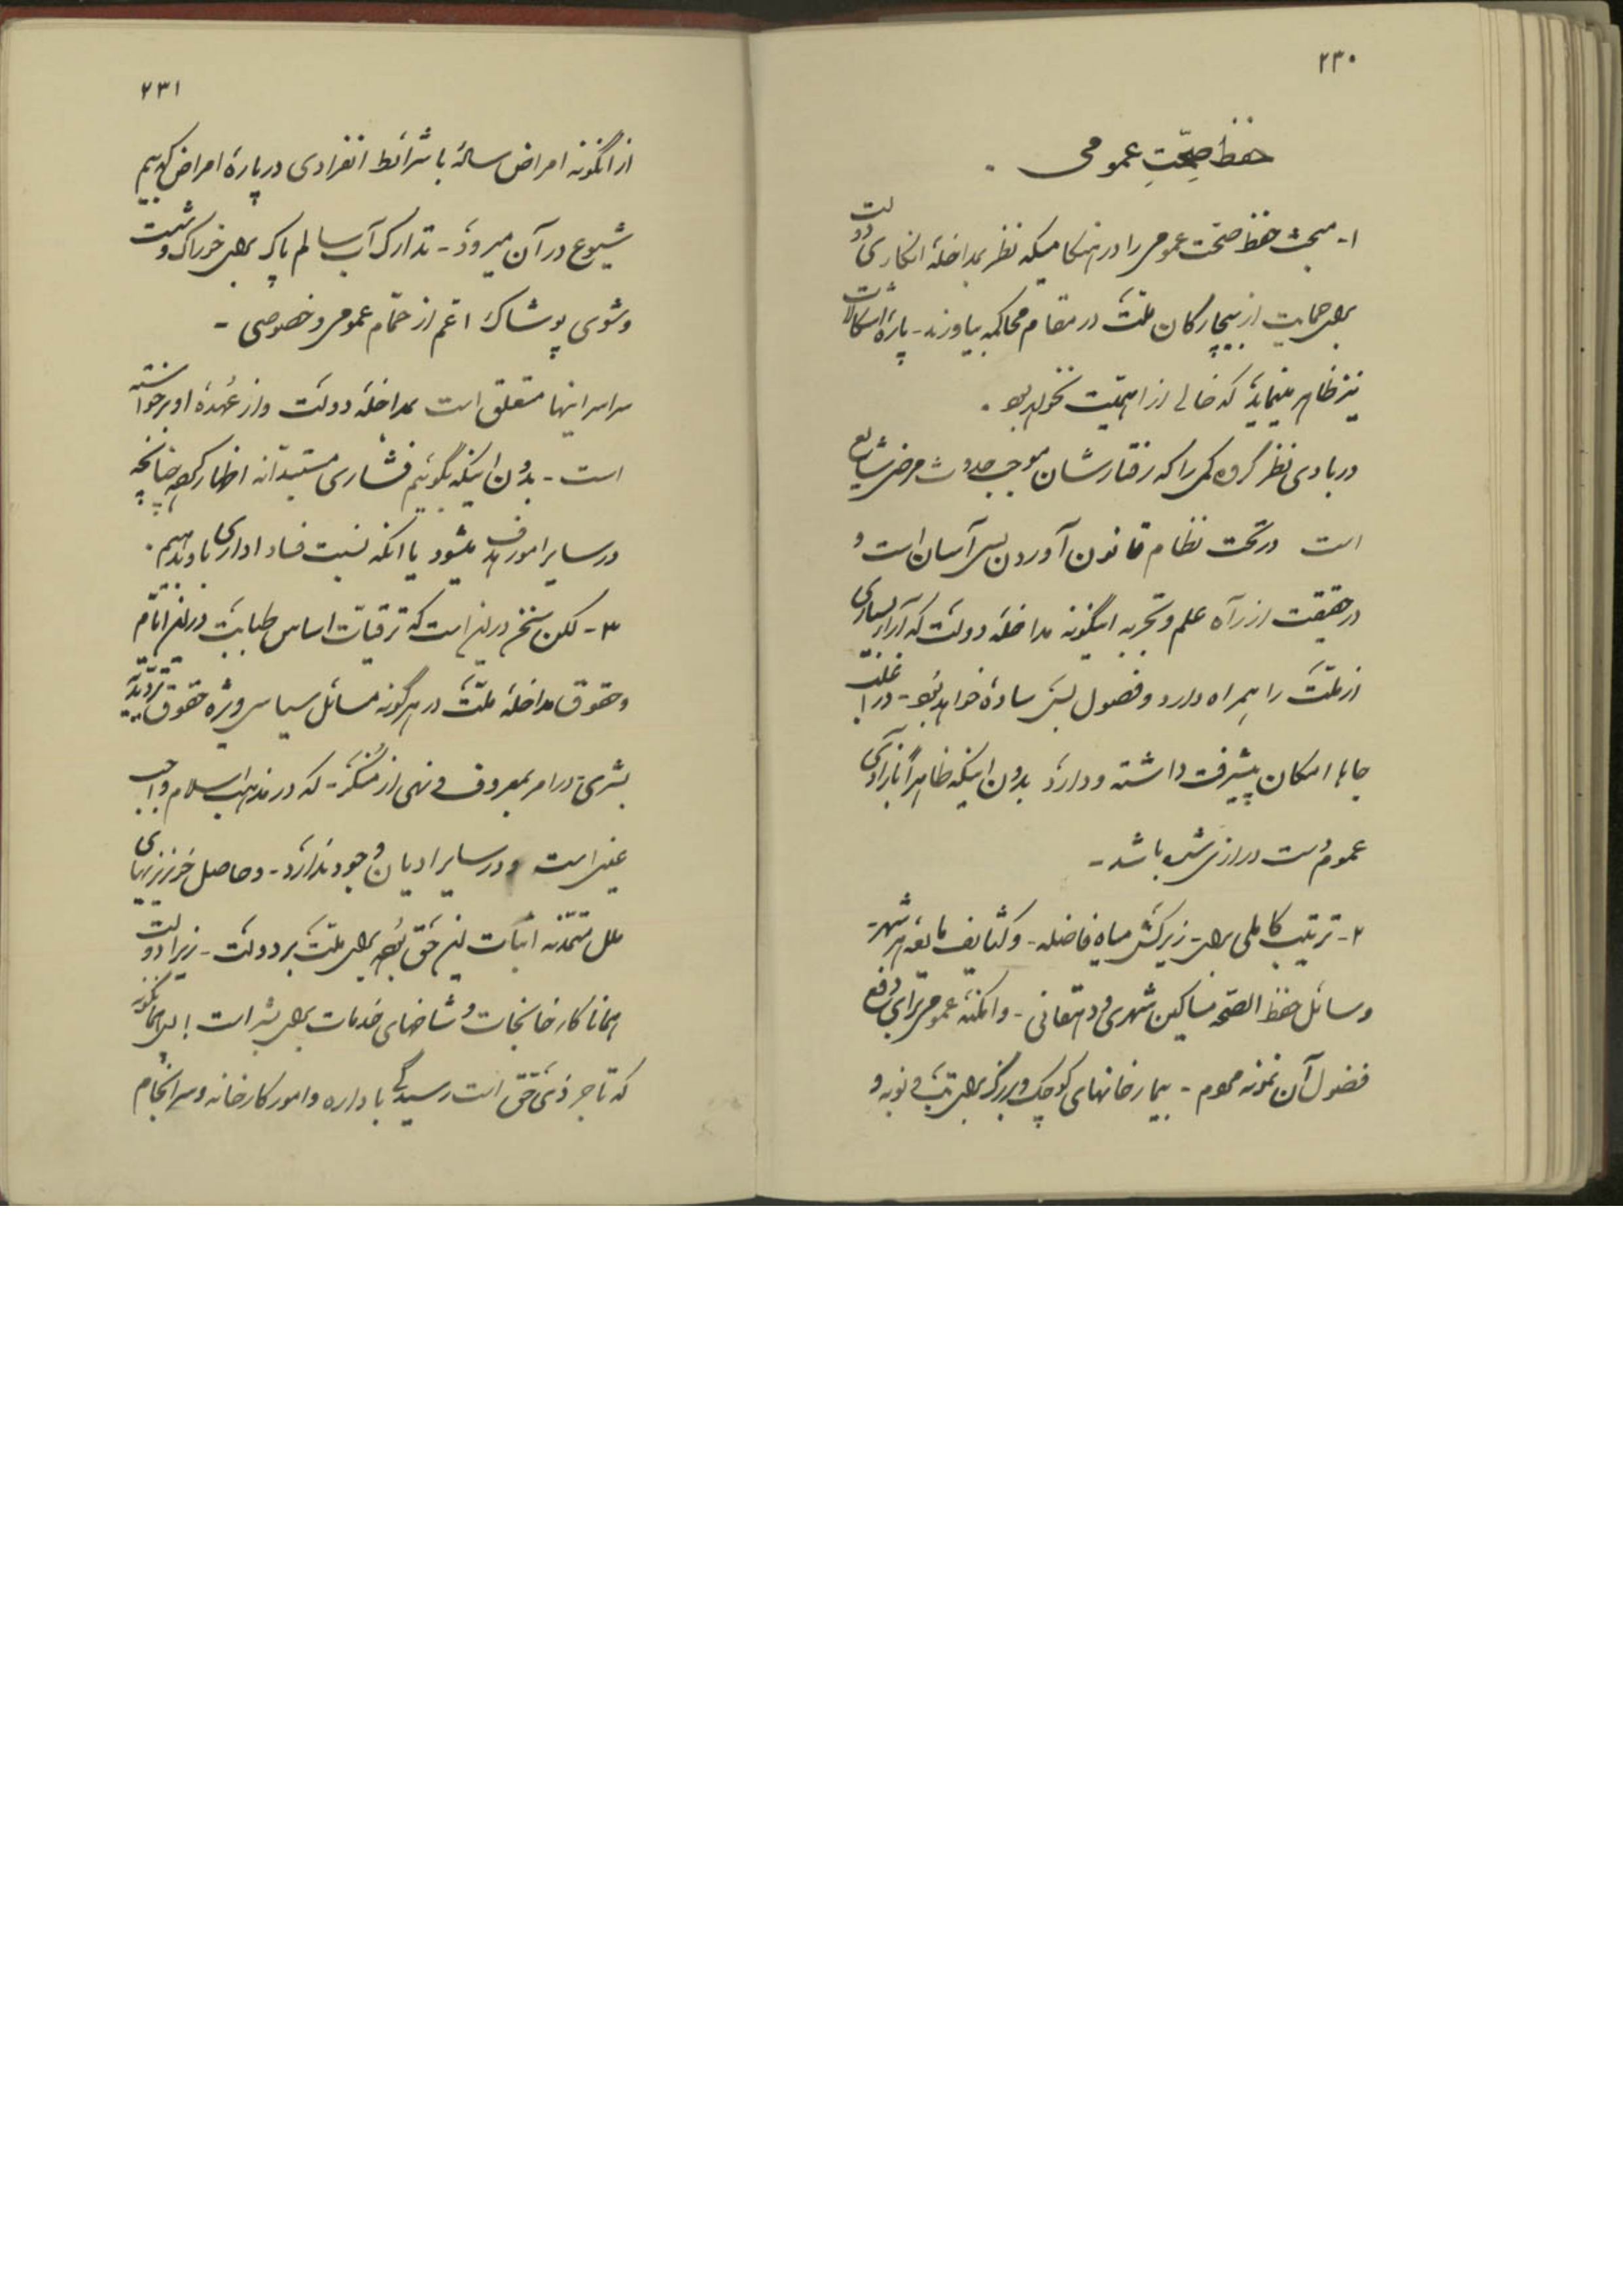 ۲۳۰
حفظ صِحّتِ عمومی .
۱- مبحث حفظ صحّت عمومی را در هنگامیکه نظر بمداخلهٔ انکاری دولت
برای حمایت از بیچارگان ملّت در مقام محاکمه بیاورند - پارهٔ اشکالات
نیز ظاهر مینماید که خالی از اهمیّت نخواهد بود .
در بادی نظر گروه کمی را که رفتارشان موجب حدوث مرض شایع
است در تحت نظام قانون آوردن بس آسان است و
در حقیقت از راه علم و تجربه اینگونه مداخلهٔ دولت که آراء بسیاری
از ملّت را همراه دارد و فصول بس ساده خواهد بود - در اغلب
جاها امکان پیشرفت داشته و دارد بدون اینکه ظاهراً بآزادی
عموم دست درازی شده باشد -
۲- ترتیب کاملی برای زیرکش میاه فاضله - و کثایف مایعهٔ هر شهر -
وسائل حفظ الصحه مساکین شهری و دهقانی - و امکنهٔ عمومی برای دفع
فضول آن نمونه عموم - بیمارخانهای کوچک و بزرگ برای تب و نوبه و
۲۳۱
از اینگونه امراض ساله با شرائط انفرادی دربارهٔ امراض که بیم
شیوع در آن میرود - تدارک آب سالم پاک برای خوراک و شست
وشوی پوشاک اعم از حمّام عمومی و خصوصی -
سراسر اینها متعلق است بمداخلهٔ دولت و از عُهدهٔ او برخواسته
است - بدون اینکه بگوئیم فشاری مستبدّانه اظهار کرده چنانچه
در سایر امور هدف میشود یا آنکه نسبت فساد اداری باو بدهیم .
۳- لکن سخن در این است که ترقیات اساس طبابت در این ایّام
و حقوق مداخلهٔ ملّت در هرگونه مسائل سیاسی ویژه حقوق
بشری در امر بمعروف و نهی از مُنکَر - که در مذهب اسلام واجب
عینی است و در سایر ادیان وجود ندارد - و حاصل خونریزیهای
ملل متمدّنه اثبات این حق بوده برای ملّت بر دولت - زیرا دولت
همانا کارخانجات و شاخهای خدمات برای بشر است ! پس همانگونه
که تاجر ذی حق است رسیدگی باداره و امور کارخانه و سرانجام